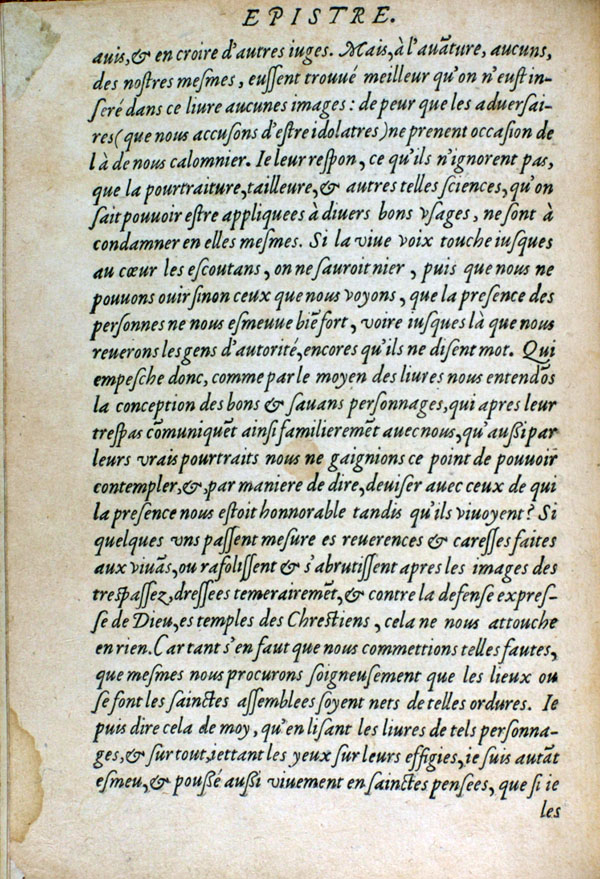 EPISTRE.
auis, & en croire d'autres iuges. Mais, à l'auãture, aucuns,
des nostres mesmes, eussent trouué meilleur qu'on n'eust in-
seré dans ce liure aucunes images : de peur que les aduersai-
res (que nous accusons d'estre idolatres) ne prenent occasion de
là de nous calomnier. Ie leur respon, ce qu'ils n'ignorent pas,
que la pourtraiture, tailleure, & autres telles sciences, qu'on
sait pouuoir estre appliquees à diuers bons vsages, ne sont à
condamner en elles mesmes. Si la viue voix touche iusques
au cœur les escoutans, on ne sauroit nier, puis que nous ne
pouuons ouir sinon ceux que nous voyons, que la presence des
personnes ne nous esmeuue biẽ fort, voire iusques là que nous
reuerons les gens d'autorité, encores qu'ils ne disent mot. Qui
empesche donc, comme par le moyen des liures nous entendõs
la conception des bons & sauans personnages, qui apres leur
trespas cõmuniquẽt ainsi familieremẽt auec nous, qu'aussi par
leurs vrais pourtraits nous ne gaignions ce point de pouuoir
contempler, &, par maniere de dire, deuiser auec ceux de qui
la presence nous estoit honnorable tandis qu'ils viuoyent? Si
quelques vns passent mesure es reuerences & caresses faites
aux viuãs, ou rafolissent & s'abrutissent apres les images des
trespassez, dressees temerairemẽt, & contre la defense expres-
se de Dieu, es temples des Chrestiens, cela ne nous attouche
en rien. Car tant s'en faut que nous commettions telles fautes,
que mesmes nous procurons soigneusement que les lieux ou
se font les sainctes assemblees soyent nets de telles ordures. Ie
puis dire cela de moy, qu'en lisant les liures de tels personna-
ges, & sur tout, iettant les yeux sur leurs effigies, ie suis autãt
esmeu, & poussé aussi viuement en sainctes pensees, que si ie
les